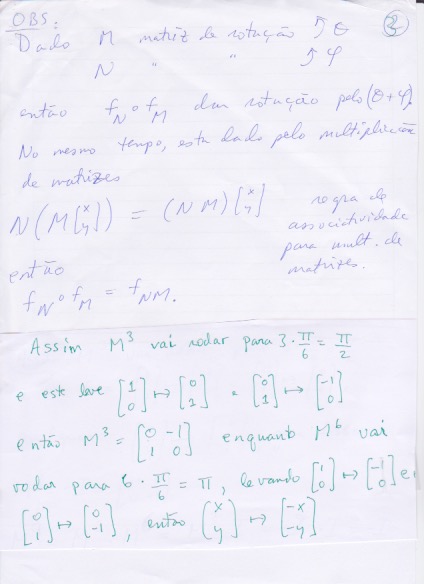 OBS: 3
Dado M matriz de rotação ↺ θ
N " " ↺ φ
então f_N∘f_M dam rotação pelo (θ+φ)
No mesmo tempo, esta dada pelo multiplicação
de matrizes
N(M[x y]) = (NM)[x y] regra de associatividade para mult. de matrizes.
então
f_N∘f_M = f_NM.
Assim M³ vai rodar para 3·π/6 = π/2
e este leve [1 0] ↦ [0 1] e [0 1] ↦ [-1 0]
então M³ = [0 -1 1 0] enquanto M⁶ vai
rodar para 6·π/6 = π, levando [1 0] ↦ [-1 0] e
[0 1] ↦ [0 -1], então (x y) ↦ [-x -y]